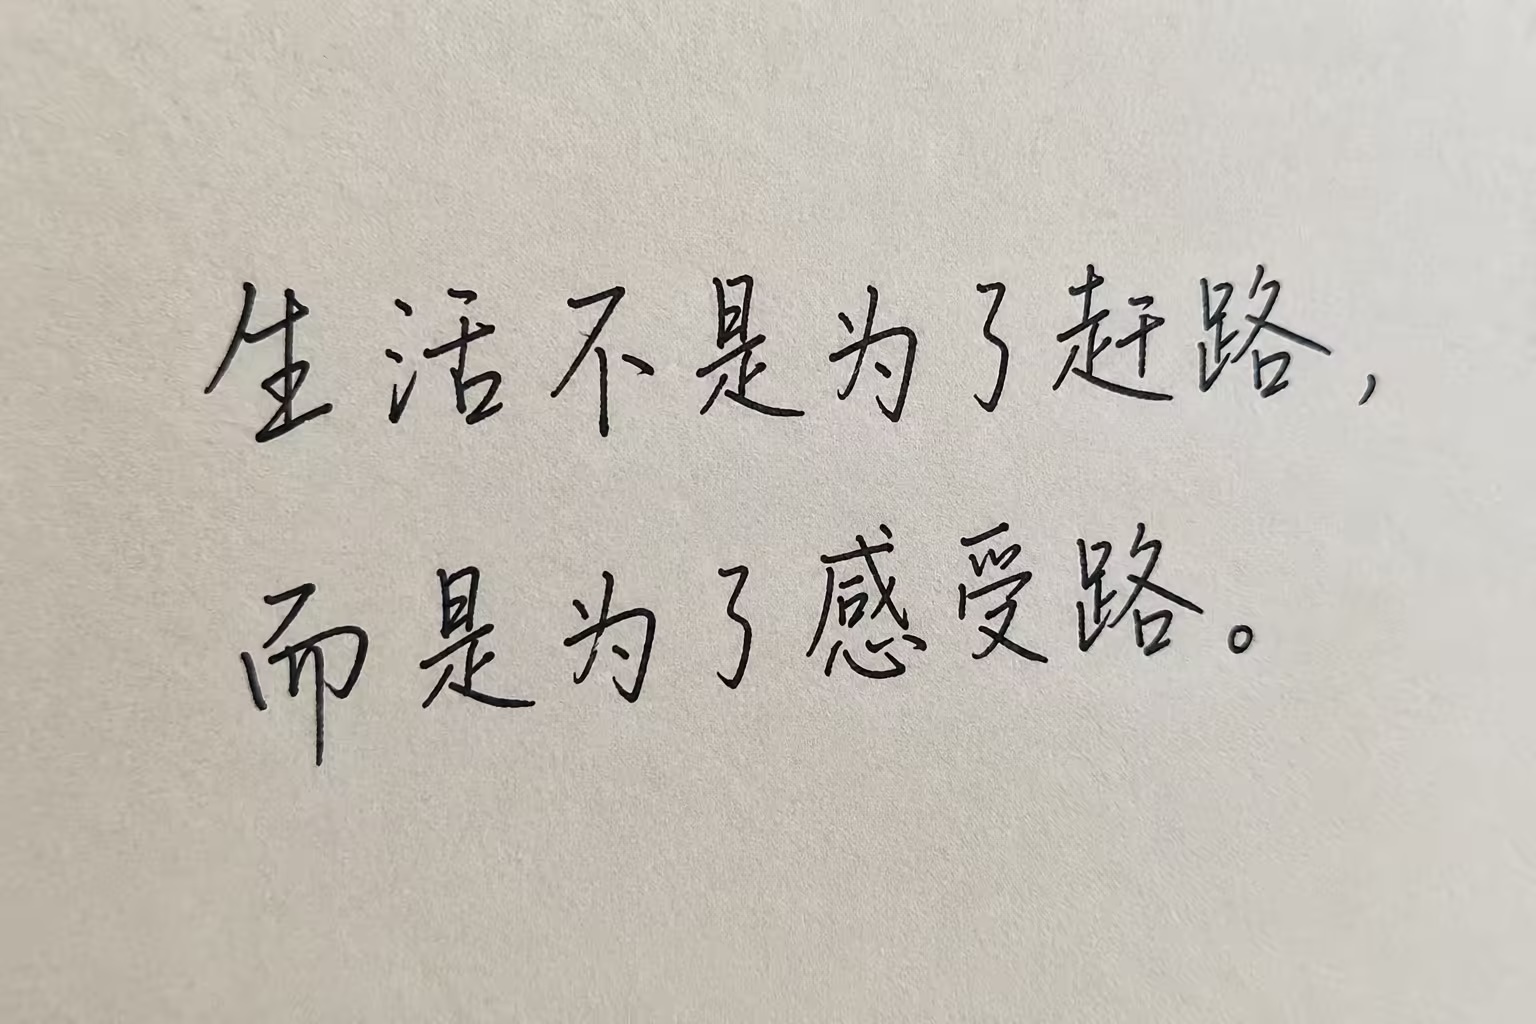 生活不是为了赶路，
而是为了感受路。